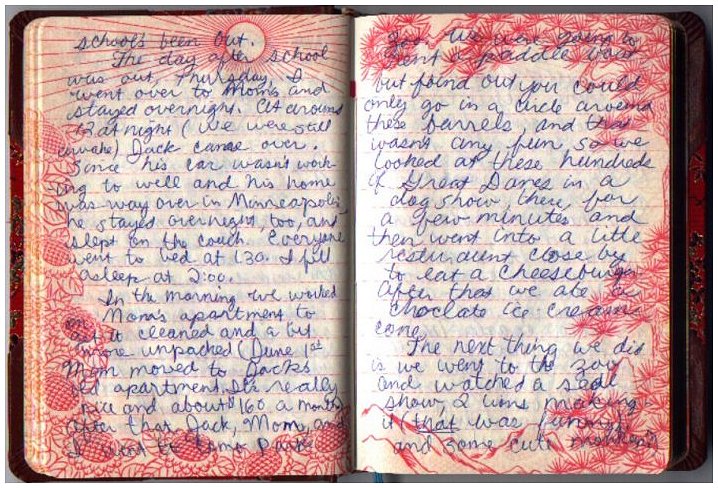 school's been out.
The day after school
was out, Thursday, I
went over to Mom's and
stayed overnight. At around
12 at night (we were still
awake) Jack came over.
Since his car wasn't work-
ing to well and his home
was way over in Minneapolis,
he stayed overnight, too, and
slept on the couch. Everyone
went to bed at 1:30. I fell
asleep at 2:00.
In the morning we worked
on Mom's apartment to
get it cleaned and a bit
more unpacked (June 1st
Mom moved to Jack's
old apartment. It's really
nice and about $160 a month)
After that Jack, Mom, and
I went to Como Park
Zoo. We were going to
rent a paddle boat
but found out you could
only go in a circle around
these barrels, and that
wasn't any fun so we
looked at these hundreds
of Great Danes in a
dog show there for
a few minutes and
then went into a little
resturaunt close by
to eat a cheeseburger.
After that we ate a
choclate ice cream
cone.
The next thing we did
is we went to the zoo
and watched a seal
show, 2 lions making
it (that was funny)
and some cute monkeys